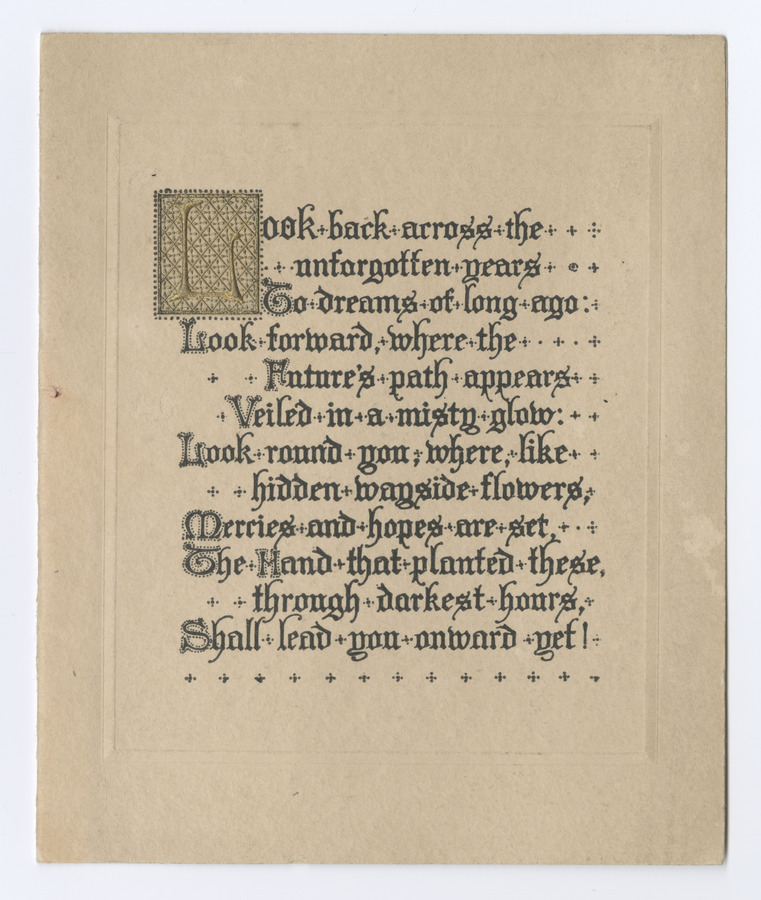 Look back across the
unforgotten years
To dreams of long ago:
Look forward, where the
Future's path appears
Veiled in a misty glow:
Look round you, where, like
hidden wayside flowers,
Mercies and hopes are set,
The Hand that planted these,
through darkest hours,
Shall lead you onward yet!